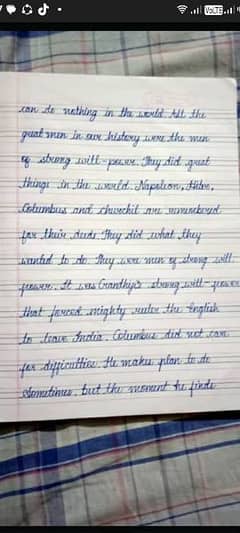 can do nothing in the world. All the
great men in our history were the men
of strong will-power. They did great
things in the world. Napoleon,
Columbus and churchil are remembered
for their deeds They did what they
wanted to do. They were men of strong will
power. It was Gandhji's strong will-power
that forced mighty ruler the English
to leave India. Columbus did not care
for difficulties. He makes plan to do
Sometimes, but the moment he finds